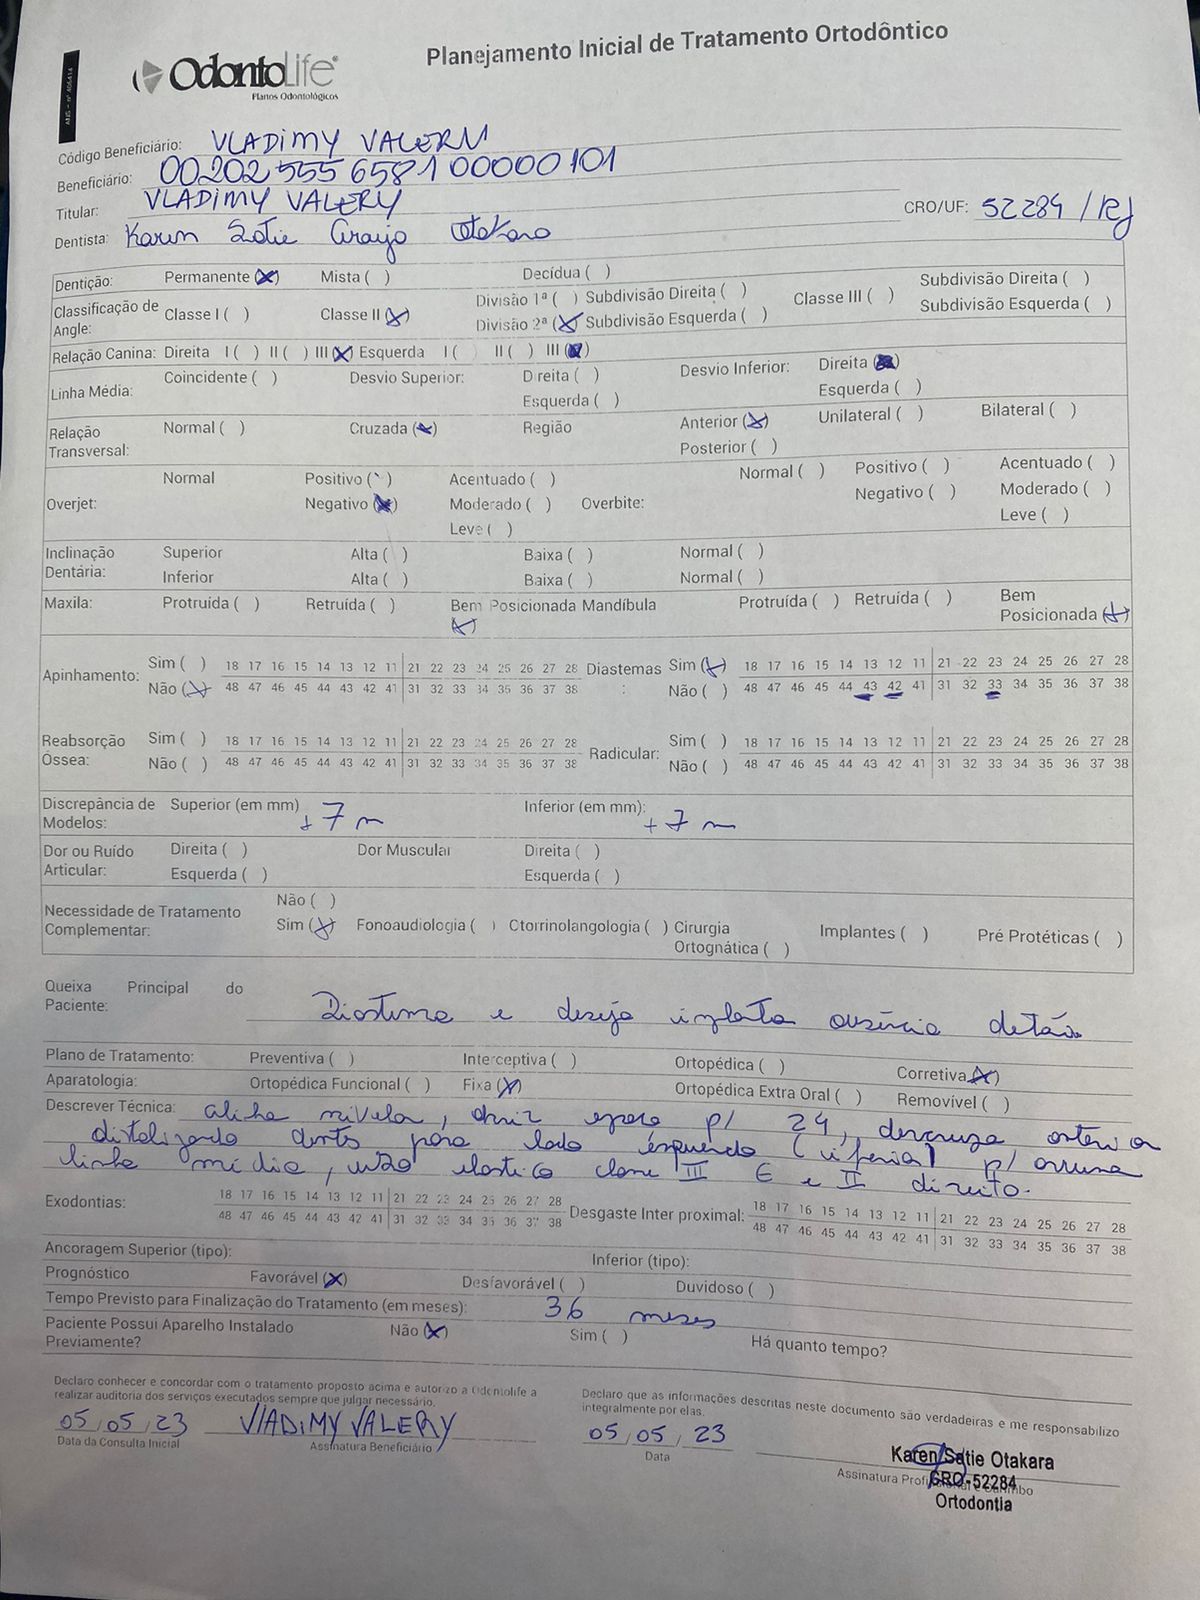 Planejamento Inicial de Tratamento Ortodôntico
ANS - nº 406414
OdontoLife®
Planos Odontológicos
Código Beneficiário: VLADIMY VALERY
Beneficiário: 00202 555 6581 00000101
Titular: VLADIMY VALERY
Dentista: Karen Satie Araujo Otakara CRO/UF: 52284 / RJ
Dentição: Permanente (X) Mista ( ) Decídua ( )
Classificação de Angle: Classe I ( ) Classe II (X) Divisão 1ª ( ) Subdivisão Direita ( ) Classe III ( ) Subdivisão Direita ( )
Divisão 2ª (X) Subdivisão Esquerda ( ) Subdivisão Esquerda ( )
Relação Canina: Direita I ( ) II ( ) III (X) Esquerda I ( ) II ( ) III (X)
Linha Média: Coincidente ( ) Desvio Superior: Direita ( ) Desvio Inferior: Direita (X)
Esquerda ( ) Esquerda ( )
Relação Transversal: Normal ( ) Cruzada (X) Região Anterior (X) Unilateral ( ) Bilateral ( )
Posterior ( )
Overjet: Normal Positivo ( ) Acentuado ( ) Overbite: Normal ( ) Positivo ( ) Acentuado ( )
Negativo (X) Moderado ( ) Negativo ( ) Moderado ( )
Leve ( ) Leve ( )
Inclinação Dentária: Superior Alta ( ) Baixa ( ) Normal ( )
Inferior Alta ( ) Baixa ( ) Normal ( )
Maxila: Protruída ( ) Retruída ( ) Bem Posicionada (X) Mandíbula Protruída ( ) Retruída ( ) Bem Posicionada (X)
Apinhamento: Sim ( ) 18 17 16 15 14 13 12 11 21 22 23 24 25 26 27 28 Diastemas : Sim (X) 18 17 16 15 14 13 12 11 21 22 23 24 25 26 27 28
Não (X) 48 47 46 45 44 43 42 41 31 32 33 34 35 36 37 38 Não ( ) 48 47 46 45 44 43 42 41 31 32 33 34 35 36 37 38
Reabsorção Óssea: Sim ( ) 18 17 16 15 14 13 12 11 21 22 23 24 25 26 27 28 Radicular: Sim ( ) 18 17 16 15 14 13 12 11 21 22 23 24 25 26 27 28
Não ( ) 48 47 46 45 44 43 42 41 31 32 33 34 35 36 37 38 Não ( ) 48 47 46 45 44 43 42 41 31 32 33 34 35 36 37 38
Discrepância de Modelos: Superior (em mm) + 7 m Inferior (em mm): + 7 m
Dor ou Ruído Articular: Direita ( ) Dor Muscular Direita ( )
Esquerda ( ) Esquerda ( )
Necessidade de Tratamento Complementar: Não ( )
Sim (X) Fonoaudiologia ( ) Otorrinolangologia ( ) Cirurgia Ortognática ( ) Implantes ( ) Pré Protéticas ( )
Queixa Principal do Paciente: Diastema e deseja implanta ausência
Plano de Tratamento: Preventiva ( ) Interceptiva ( ) Ortopédica ( ) Corretiva (X)
Aparatologia: Ortopédica Funcional ( ) Fixa (X) Ortopédica Extra Oral ( ) Removível ( )
Descrever Técnica: alinha nivela, abrir espaço p/ 24, descruza anterior
distalizando dentes para lado esquerdo (inferior) p/ arruma
linha média, usar elastico classe III E e II direito.
Exodontias: 18 17 16 15 14 13 12 11 21 22 23 24 25 26 27 28 Desgaste Inter proximal: 18 17 16 15 14 13 12 11 21 22 23 24 25 26 27 28
48 47 46 45 44 43 42 41 31 32 33 34 35 36 37 38 48 47 46 45 44 43 42 41 31 32 33 34 35 36 37 38
Ancoragem Superior (tipo): Inferior (tipo):
Prognóstico Favorável (X) Desfavorável ( ) Duvidoso ( )
Tempo Previsto para Finalização do Tratamento (em meses): 36 meses
Paciente Possui Aparelho Instalado Previamente? Não (X) Sim ( ) Há quanto tempo?
Declaro conhecer e concordar com o tratamento proposto acima e autorizo a Odontolife a
realizar auditoria dos serviços executados sempre que julgar necessário.
Declaro que as informações descritas neste documento são verdadeiras e me responsabilizo
integralmente por elas.
05/05/23 VLADIMY VALERY 05/05/23
Data da Consulta Inicial Assinatura Beneficiário Data
Karen Satie Otakara
Assinatura Profissional e Carimbo
CRO-52284
Ortodontia